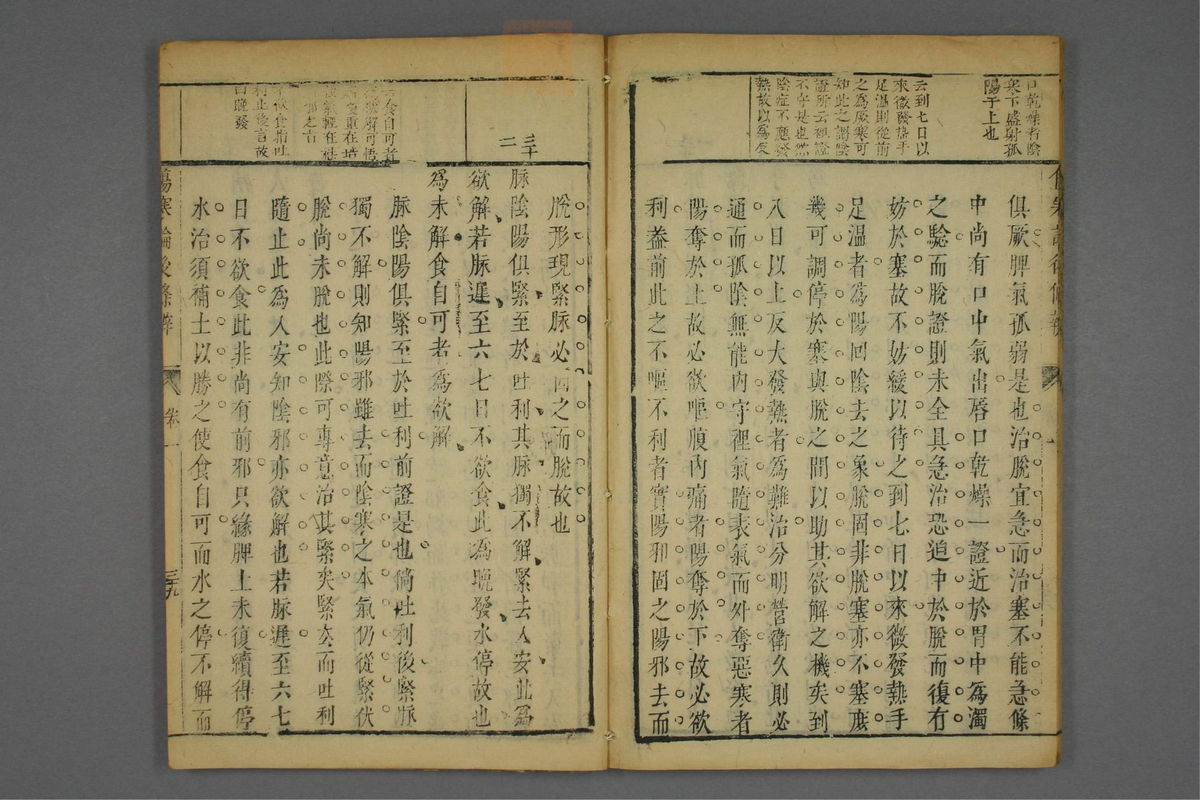 口乾燥者陰
寒下盛對孤
陽于上也
云到七日以
來微發熱手
足溫則從前
之為厥寒可
知此之謂陰
證所云裡證
不守是也然
陰症不應發
熱故以為反
俱厥脾氣孤弱是也治脫宜急而治塞不能急條
中尚有口中氣出唇口乾燥一證近於胃中為濁
之驗而脫證則未全具急治恐追中於脫而復有
妨於塞故不妨緩以待之到七日以來微發熱手
足溫者為陽回陰去之象脫固非脫塞亦不塞庶
幾可調停於塞與脫之間以助其欲解之機矣到
八日以上反大發熱者為難治分明營衛久則必
通而孤陰無能內守裡氣隨表氣而外奪惡寒者
陽奪於上故必欲嘔腹內痛者陽奪於下故必欲
利葢前此之不嘔不利者實陽邪固之陽邪去而
脫形現緊脉必因之而脫故也
三十二
脉陰陽俱緊至於吐利其脉獨不解緊去人安此為
欲解若脉遲至六七日不欲食此為晚發水停故也
為未解食自可者為欲解
脉陰陽俱緊至於吐利前證是也倘吐利後緊脉
獨不解則知陽邪雖去而陰寒之本氣仍從緊伏
脫尚未脫也此際可專意治其緊矣緊去而吐利
隨止此為人安知陰邪亦欲解也若脉遲至六七
日不欲食此非尚有前邪只緣脾土未復續得停
水治須補土以勝之使食自可而水之停不解而
去食自可者
利止後言故
曰晚發
傷寒論後條辨
卷一
三九